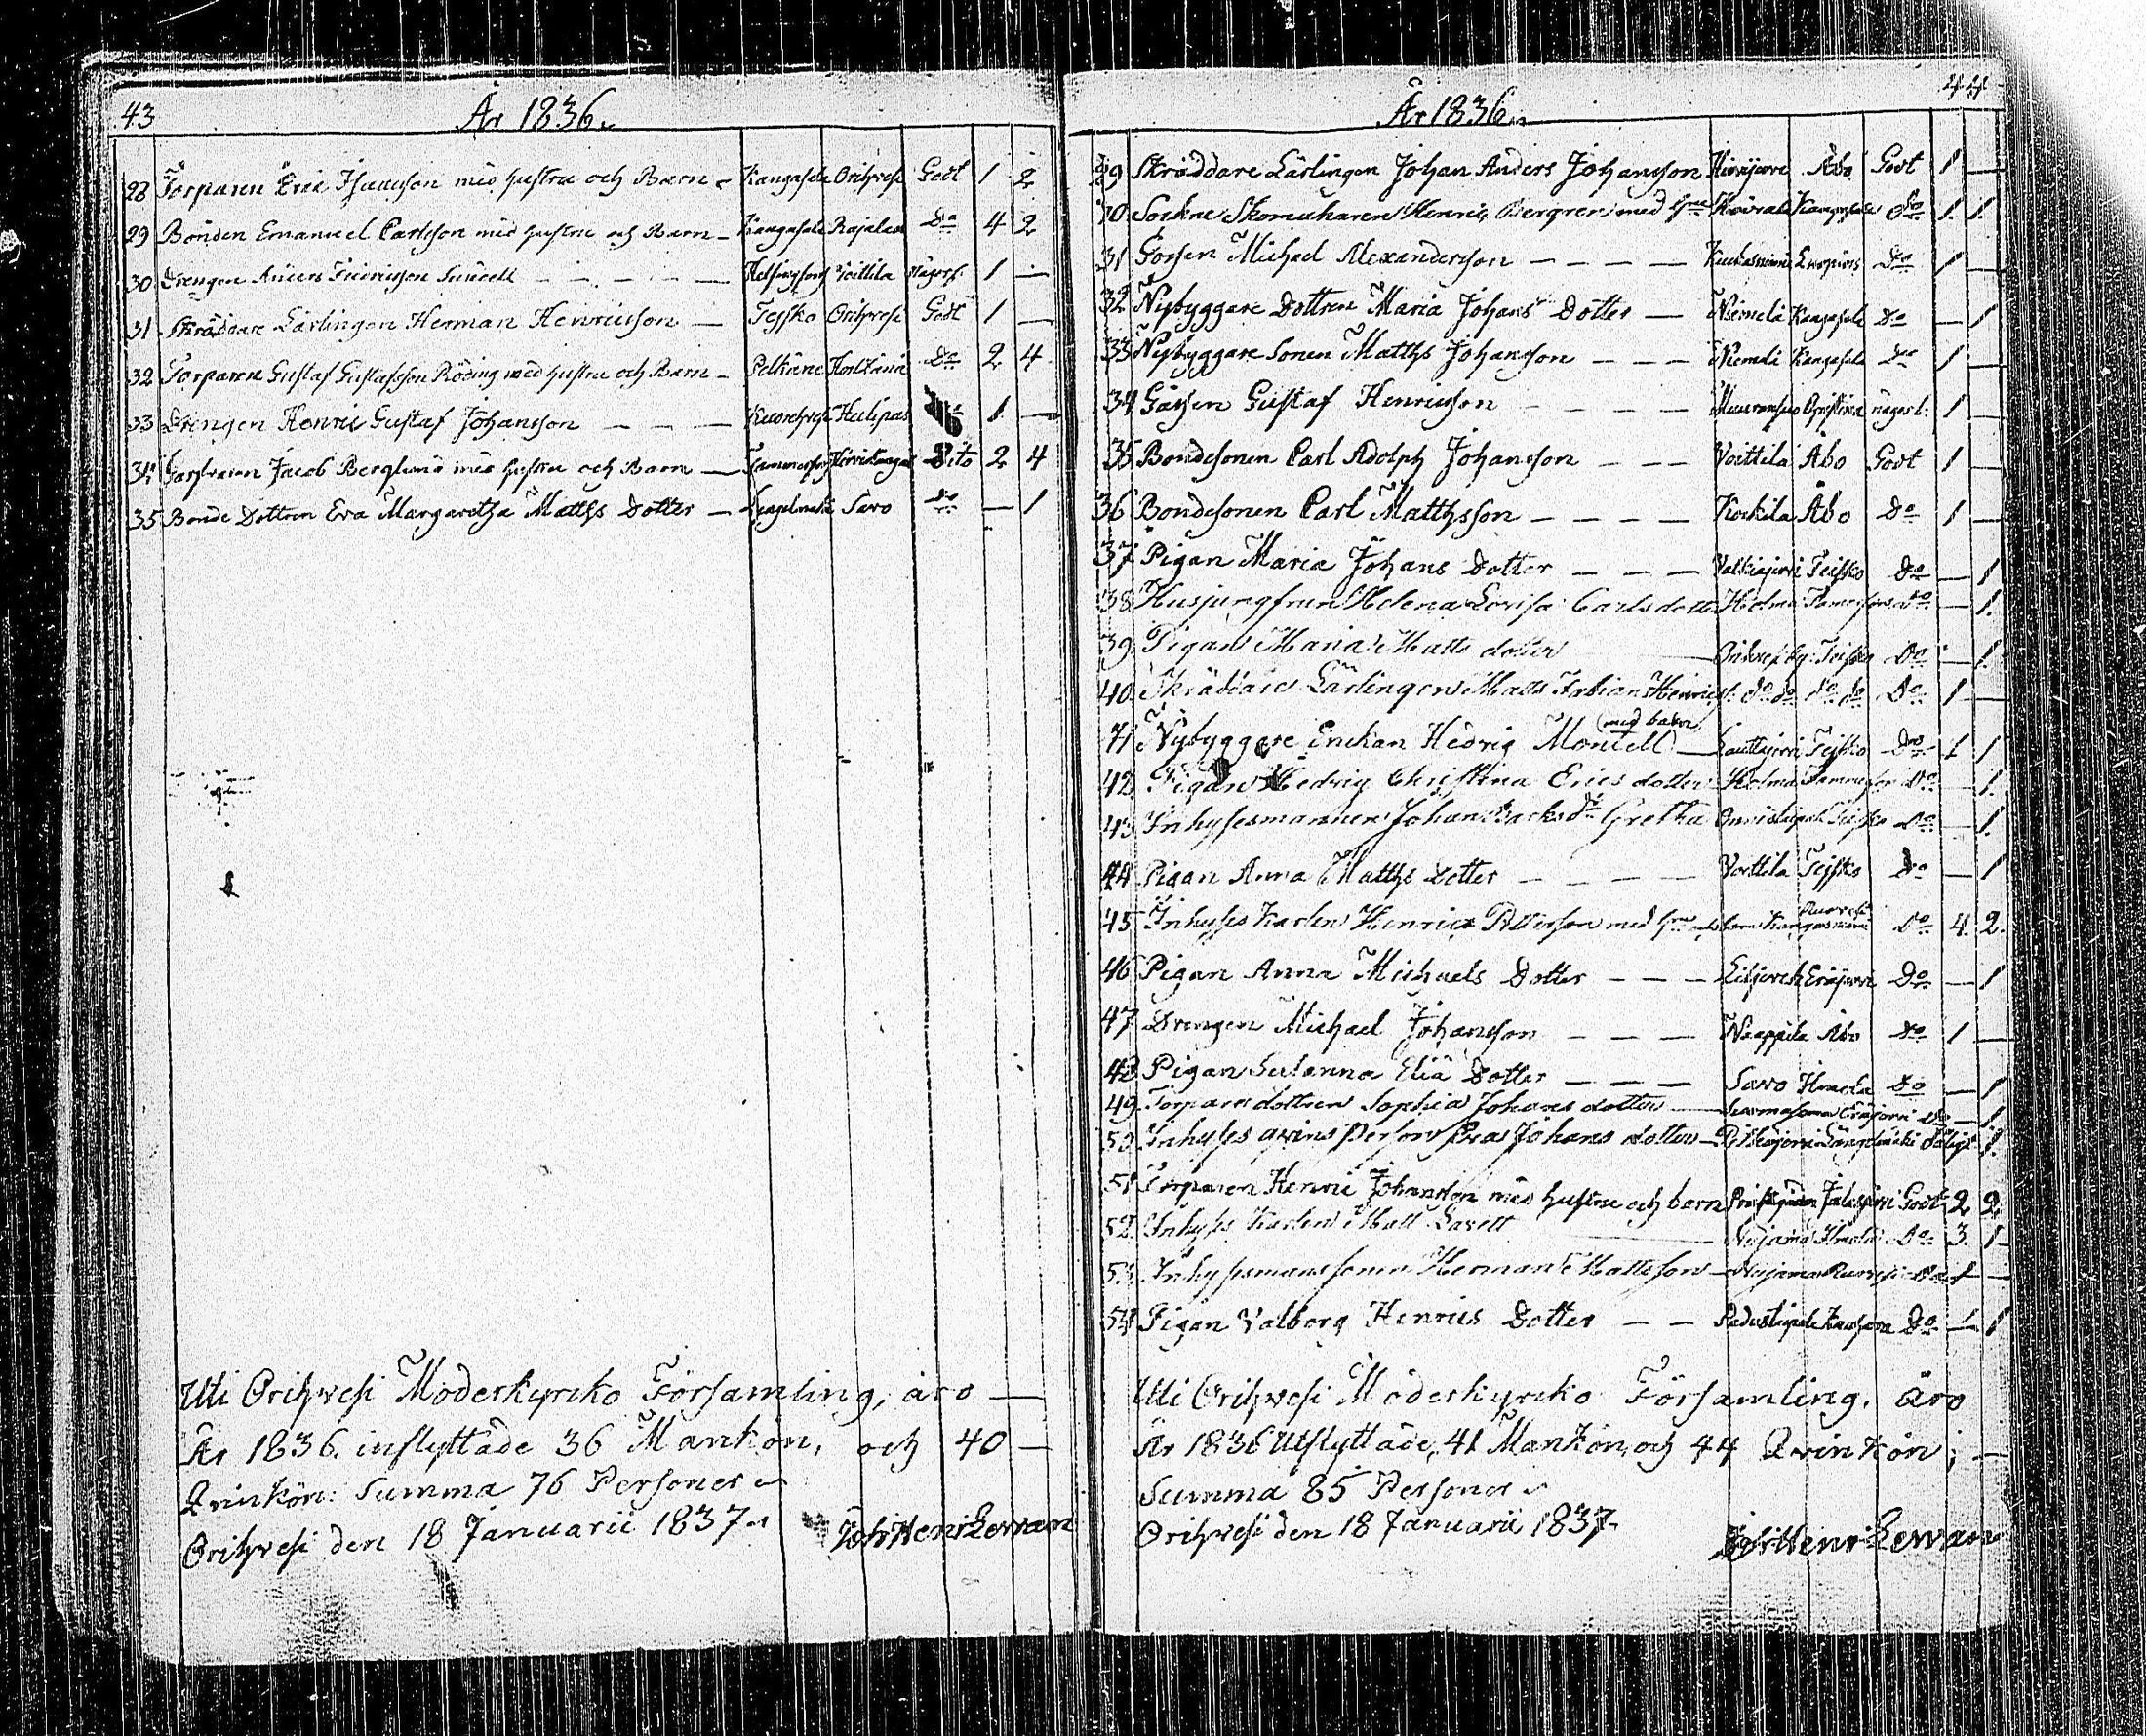 43
År 1836.
28 Torparen Eric Isacsson med hustru och Barn - Kangasala Orihvesi Godt 1 2
29 Bonden Emanuel Carlsson med hustru och Barn - Kangasala Rajalax Do 4 2
30 Drengen Anders Fredricsson Sundell - - - - Helsingfors Voittila 1 -
31 Skräddare Lärlingen Herman Henricsson - Teisko Orihvesi Godt 1 -
32 Torparen Gustaf Gustafsson Röding med hustru och Barn - Pelkäne Do 2 4
33 Drengen Henric Gustaf Johansson - - - Kuorehvesi 1 -
34 Jacob Berglund med hustru och Barn - Dito 2 4
35 Bonde Dottren Eva Margaretha Matths Dotter - Savo Do - 1
Uti Orihvesi Moderkyrko Församling, äro -
År 1836. inflyttade 36 Mankön, och 40 -
Qvinkön: Summa 76 Personer
Orihvesi den 18 Januarii 1837. Joh: Henr: Lewan
44
År 1836.
29 Skräddare Lärlingen Johan Anders Johansson Hirvijervi Åbo Godt 1 -
30 Sockne Skomakaren Henric Bergren med Kangasala Do 1 1
31 Gossen Michael Alexandersson - - - - Do 1 -
32 Nybyggare Dottren Maria Johans Dotter - Niemelä Kangasala Do - 1
33 Nybyggare Sonen Matths Johansson - - - Niemelä Kangasala Do 1 -
34 Gossen Gustaf Henricsson - - - - 1 -
35 Bondesonen Carl Adolph Johansson - - - Voittila Åbo Godt 1 -
36 Bondesonen Carl Matthsson - - - - Koskila Åbo Do 1 -
37 Pigan Maria Johans Dotter - - - Valkiajervi Teisko Do - 1
38 Husjungfrun Helena Lovisa Carlsdotter Holma Do - 1.
39 Pigan Maria Matts dotter - Teisko Do - 1.
40 Skräddare Lärlingen Matts Fabian Henricss: do do do do Do 1 -
41 Nybyggare Enckan Hedvig Montell (med barn) - Teisko Do 1 1
42. Pigan Hedvig Christina Erics dotter Holma Do - 1.
43 Inhysesmannen Johan Backs dr Gretha Teisko Do - 1.
44 Pigan Anna Matths Dotter - - - - Voittila Teisko Do - 1
45 Inhyses Karlen Henric Pettersson med Do 4. 2.
46 Pigan Anna Michaels Dotter - - - Eräjervi Do - 1
47 Drengen Michael Johansson - - - Naappila Åbo Do 1 -
48 Pigan Susanna Eliä Dotter - - - Savo Do - 1
49. Torpare dottren Sophia Johans dotter - Eräjervi Do - 1.
50 Inhyses qvins Person Eva Johans dotter - Pitkäjervi Längelmäki 1.
51 Torparen Henric Johansson med hustru och barn Godt 2 2
52. Inhyses Karlen Matt Do 3. 1
53. Inhysesmans sonen Herman Mattsson - Ruovesi Do 1 -
54 Pigan Valborg Henrics Dotter - - Do - 1
Uti Orihvesi Moderkyrko Församling, äro
År 1836 Utflyttade, 41 Mankön, och 44 Qvinkön; -
Summa 85 Personer
Orihvesi den 18 Januarii 1837. Joh: Henr: Lewan